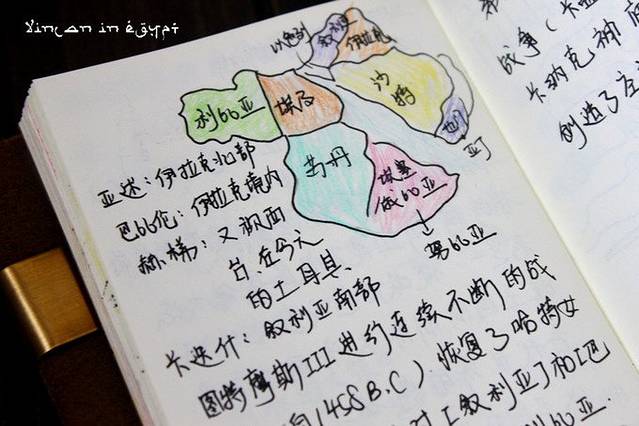 Vincan in égypt
以色列
叙利亚
伊拉克
利比亚
埃及
沙特
也门
亚丁
苏丹
埃塞
俄比亚
努比亚
亚述:伊拉克北部
巴比伦:伊拉克境内
赫梯:又
在今天
的土耳其.
卡迭什:叙利亚南部
图特摩斯III进行连续不断的战
1458B.C).恢复了哈特女
对[叙利亚]和[巴
比亚.
战争(卡
卡纳克神庙
创造了